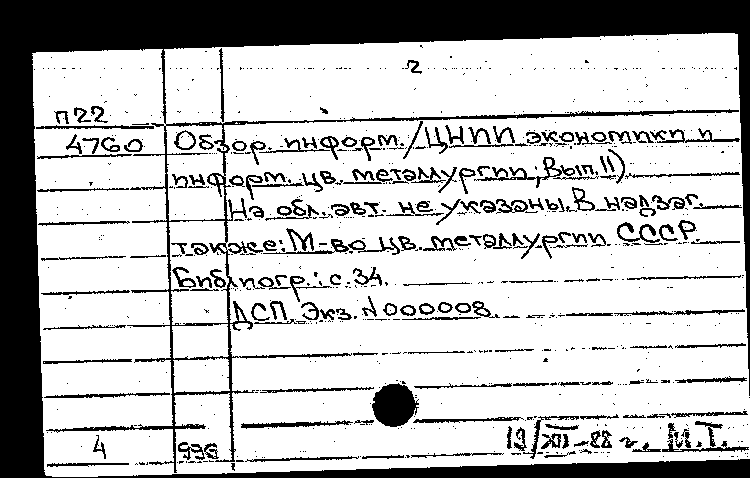 2
П22
4760 Обзор. информ./ЦНИИ экономики и
информ. цв. металлургии; Вып. 11).
На обл. авт. не указаны. В надзаг.
также: М-во цв. металлургии СССР.
Библиогр.: с. 34.
ДСП. Экз. N 000008.
4 996 19/XII-88 г. М.Т.